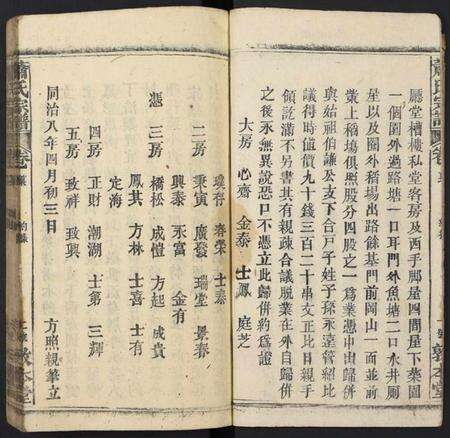 蕭氏宗譜 卷
廳堂槽樓私堂客房及西手脚屋四間屋下菜園
一個園外過路塘一口耳門外魚塘二口水井厠
屋以及園外稻場出路餘基門前岡山一面並前
業上稻場俱照股分四股之一爲業憑中出歸併
與始祖伯謙公支下合戶子姪子孫永遠管紹比
議得時値價九十錢三百二十串文正比日親手
領訖滿不另書其有親疎合議脫業在外自歸併
之後永無異說恐口不憑立此歸併約爲證
大房 心齋 金泰 士鳳 庭芝
敦本堂
蕭氏宗譜 卷
春榮 士泰
二房 秉寅 廣發 瑞堂 景泰
興泰 永富 金有
憑三房 橋松 成愷 方起 成貴
鳳其 方林 士喜 士有
定海
四房 正財 潮湖 士第 三輝
五房 致祥 致興
同治八年四月初三日 方照親筆立
敦本堂